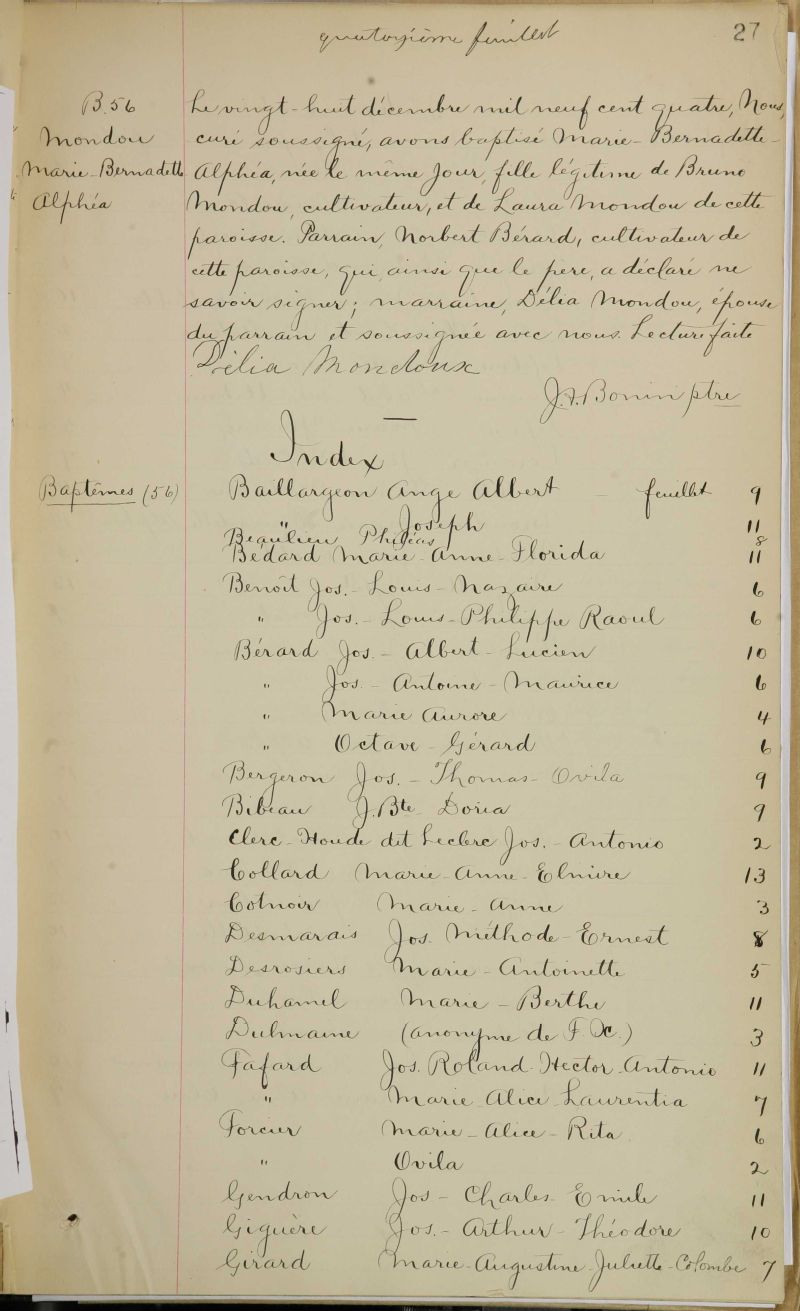 quatorzième feuillet
27
B.56
Mondou
Marie-Bernadette
Alphéa
Le vingt-huit décembre mil neuf cent quatre, Nous,
curé soussigné, avons baptisé Marie-Bernadette-
Alphéa, née le même jour, fille légitime de Bruno
Mondou, cultivateur, et de Laura Mondou de cette
paroisse. Parrain, Norbert Bérard, cultivateur de
cette paroisse, qui, ainsi que le père, a déclaré ne
savoir signer; marraine, Délia Mondou, épouse
du parrain et soussignée avec nous. Lecture faite
Délia Mondoux
J.A. Bonin ptre
Index
Baptêmes (56)
Baillargeon Ange Albert - feuillet 9
" Joseph 11
Beaulieu Philéas 8
Bédard Marie-Anne-Florida 11
Benoît Jos.-Louis-Nazaire 6
" Jos.-Louis-Philippe Raoul 6
Bérard Jos.-Albert-Lucien 10
" Jos.-Antoine-Maurice 6
" Marie Aurore 4
" Octave-Gérard 6
Bergeron Jos.-Thomas-Ovila 9
Bibeau J.Bte Doria 9
Clerc-Houde dit Leclerc Jos.-Antonio 2
Collard Marie-Anne-Elmire 13
Cotnoir Marie-Anne 3
Desmarais Jos. Méthode-Ernest 8
Desrosiers Marie-Antoinette 5
Duhamel Marie-Berthe 11
Dulmaine (anonyme de F. X.) 3
Fafard Jos. Roland-Hector-Antonio 11
" Marie-Alice-Laurentia 7
Forcier Marie-Alice-Rita 6
" Ovila 2
Gendron Jos-Charles-Emile 11
Giguère Jos.-Arthur-Théodore 10
Girard Marie-Augustine-Juliette-Colombe 7